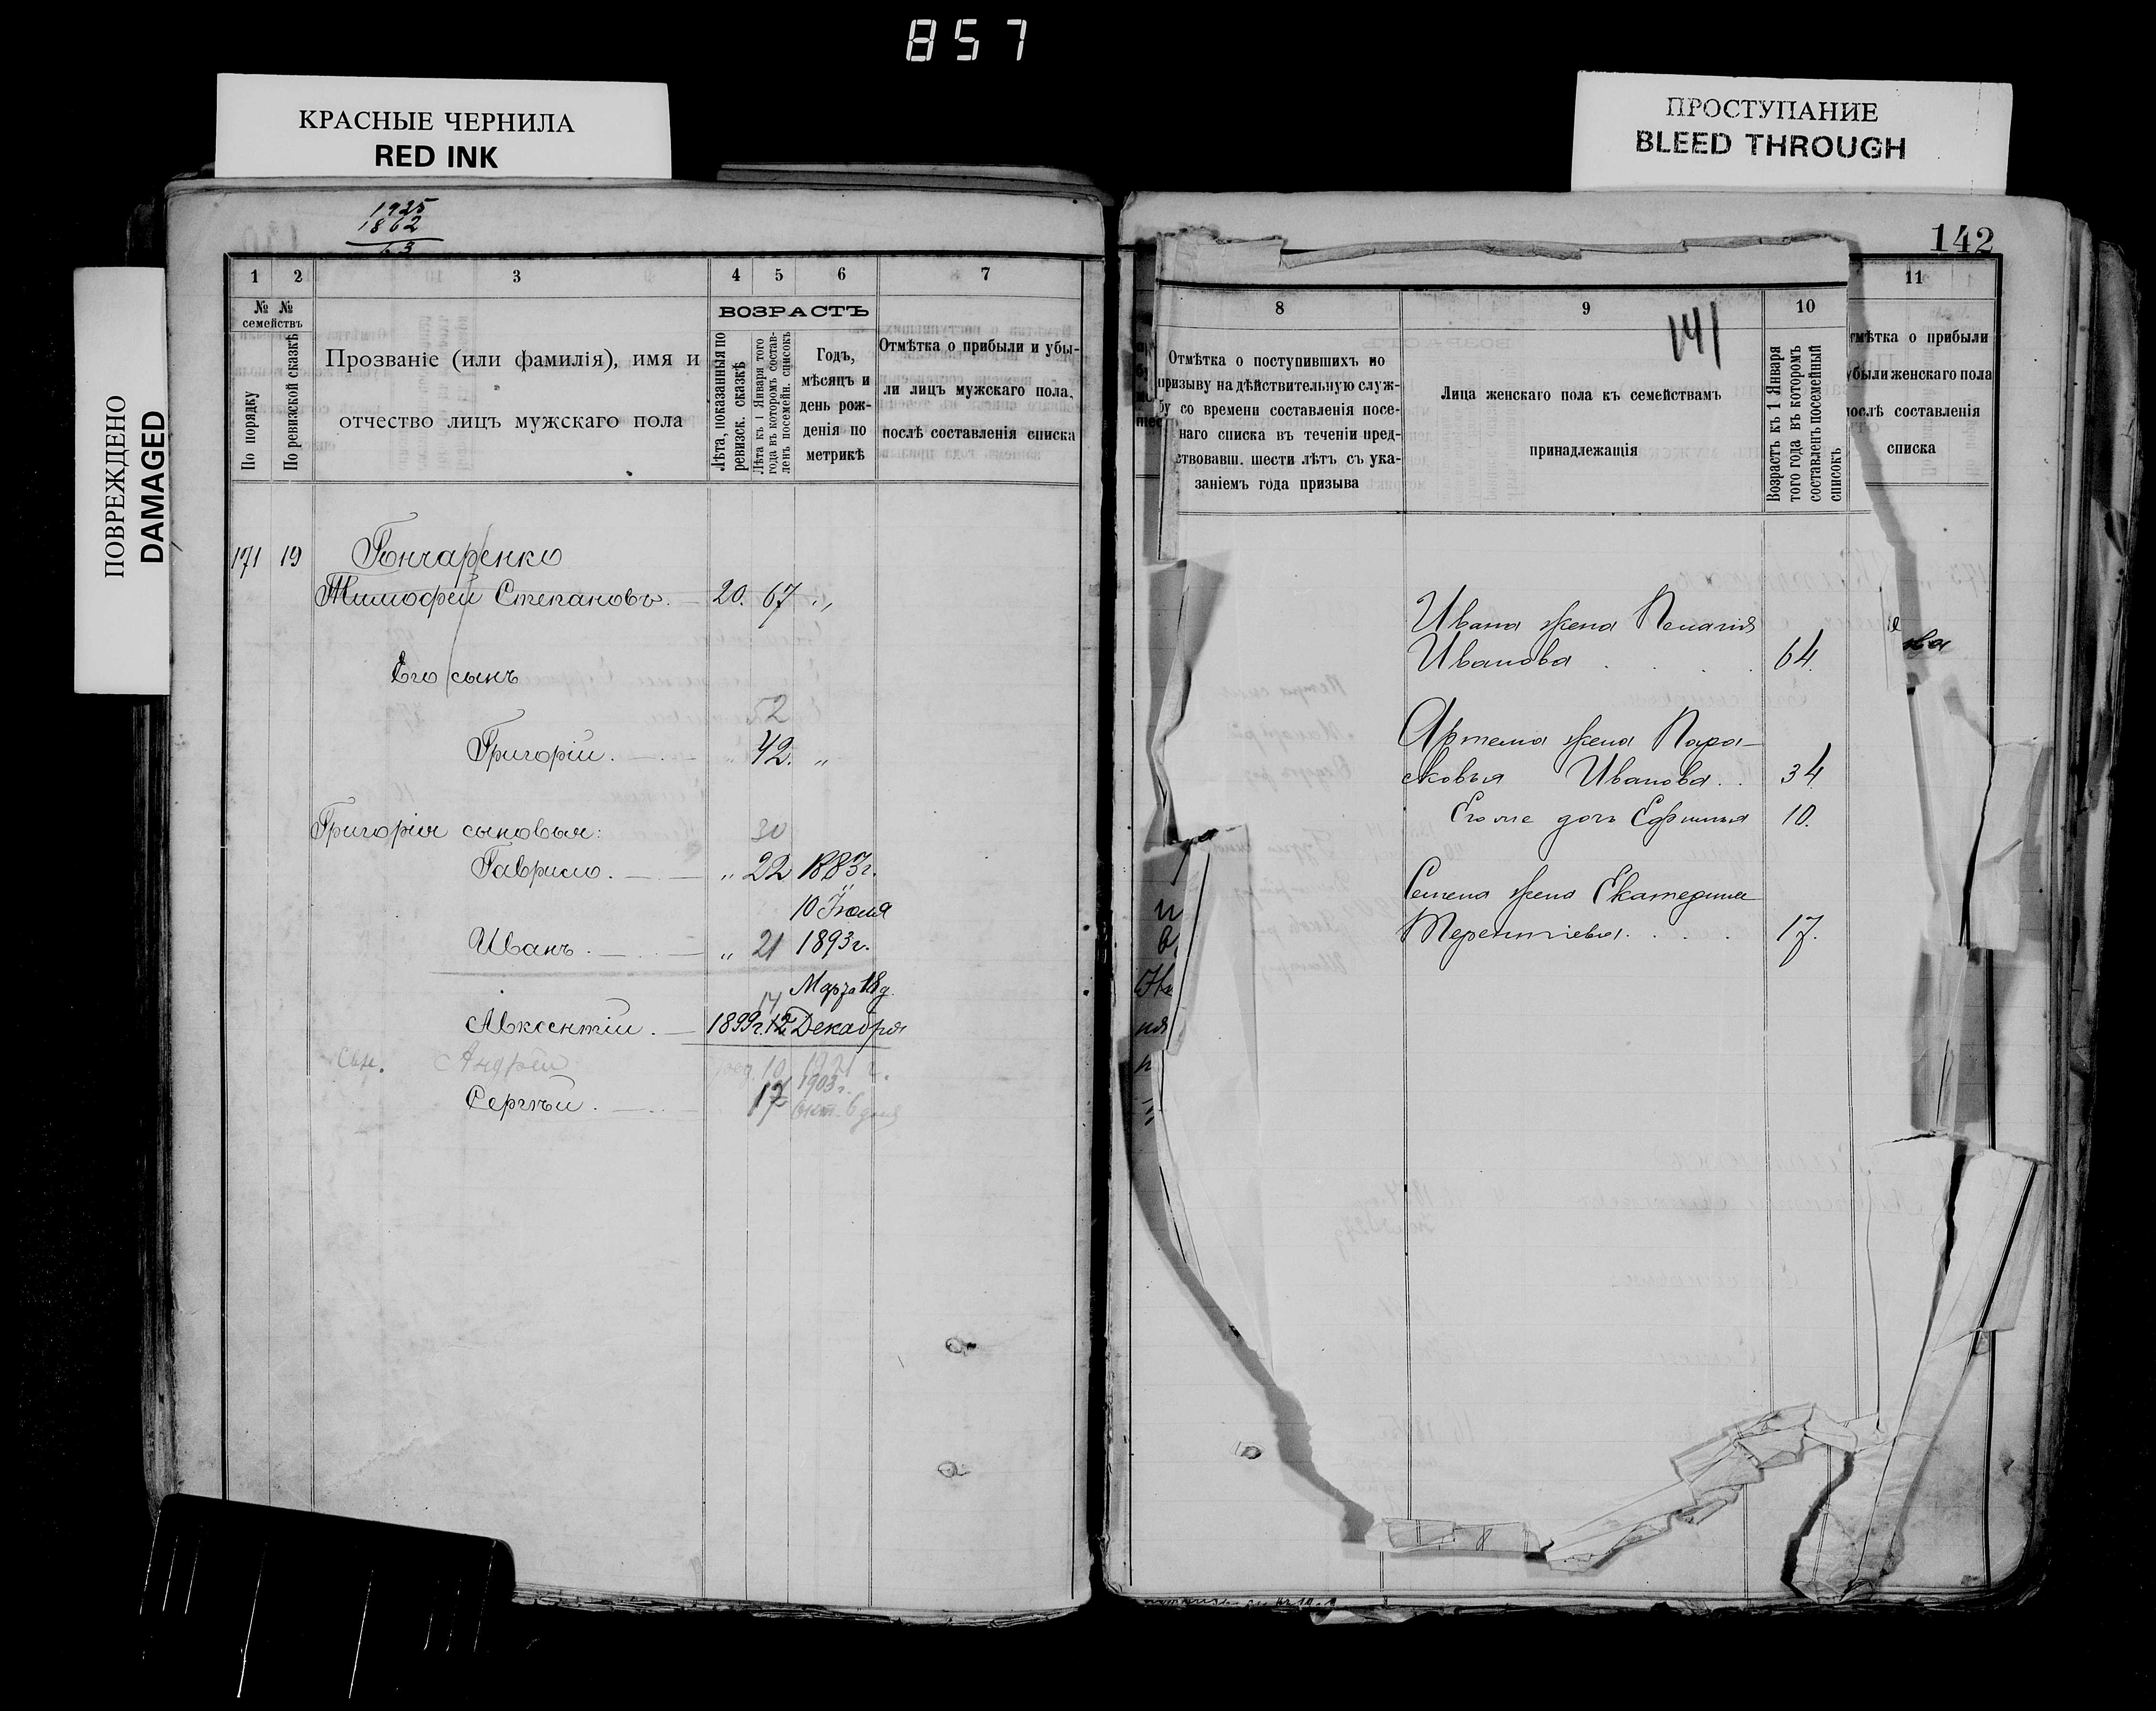 857
КРАСНЫЕ ЧЕРНИЛА
RED INK
ПРОСТУПАНИЕ
BLEED THROUGH
ПОВРЕЖДЕНО
DAMAGED
1925
1862
63
1 2 3 4 5 6 7
№ № семействъ
По порядку
По ревизской сказкѣ
Прозваніе (или фамилія), имя и
отчество лицъ мужскаго пола
ВОЗРАСТЪ
Лѣта, показанныя по
ревизск. сказкѣ
Лѣта къ 1 Января того
года въ которомъ состав-
ленъ посемейн. списокъ
Годъ,
мѣсяцъ и
день рож-
денія по
метрикѣ
Отмѣтка о прибыли и убы-
ли лицъ мужскаго пола,
послѣ составленія списка
171 19 Гончаренко
Тимофей Степановъ. 20. 67 „
Его сынъ
52
Григорій. „ 42. „
Григорія сыновья: 30
Гаврило. „ 22 1883г.
10 Іюля
Иванъ. „ 21 1893г.
Марта 18д.
17
Авксентій. 1899г. 12 Декабря
Андрей 10
1903г.
Сергѣй. 17 Окт. 6 дня
142
8 9 10 11
141
Отмѣтка о поступившихъ по
призыву на дѣйствительную служ-
бу со времени составленія посе-
наго списка въ теченіи пред-
ствовавш. шести лѣтъ съ ука-
заніемъ года призыва
Лица женскаго пола къ семействамъ
принадлежащія
Возрастъ къ 1 Января
того года въ которомъ
составленъ посемейный
списокъ
тмѣтка о прибыли
убыли женскаго пола
послѣ составленія
списка
Ивана жена Пелагія
Иванова 64.
Артема жена Пара-
сковья Иванова. 34.
Его же дочь Ефимья 10.
Семена жена Екатерина
Терентіева. 17.